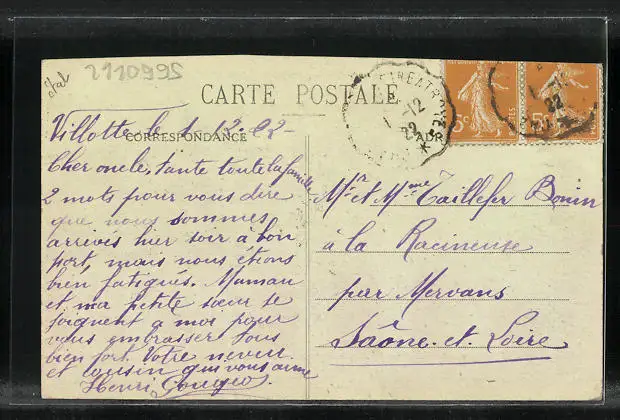 état
2110995
CARTE POSTALE
CORRESPONDANCE
Villotte le 1-12-22-
Cher oncle, tante toute la famille
2 mots pour vous dire
que nous sommes
arrivés hier soir à bon
port, mais nous étions
bien fatigués. Maman
et ma petite sœur se
joignent a moi pour
vous embrasser tous
bien fort Votre neveu
et cousin qui vous aime
Henri
Mr et Mme Taillefer Bonin
à la Racineuse
par Mervans
Saône-et-Loire
1-12
22
5c
5c
22